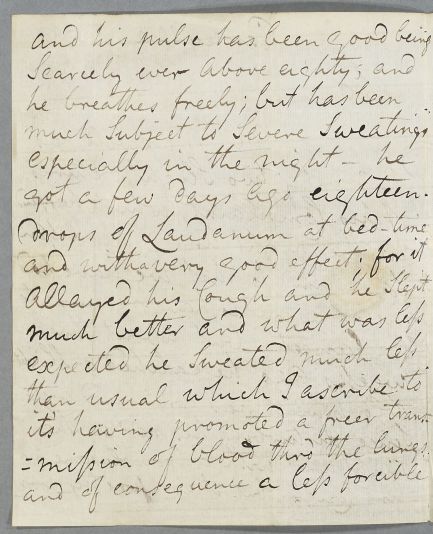 and his pulse has been good being
Scarcely ever above eighty; and
he breathes freely; but has been
much Subject to Severe Sweatings
especially in the night - he
got a few days ago eighteen
drops of Laudanum at bed-time
and with a very good effect; for it
allayed his Cough and he Slept
much better and what was less
expected he Sweated much less
than usual which I ascribe to
it's having promoted a freer trans-
=mission of blood thro the lungs,
and of consequence a less forcible